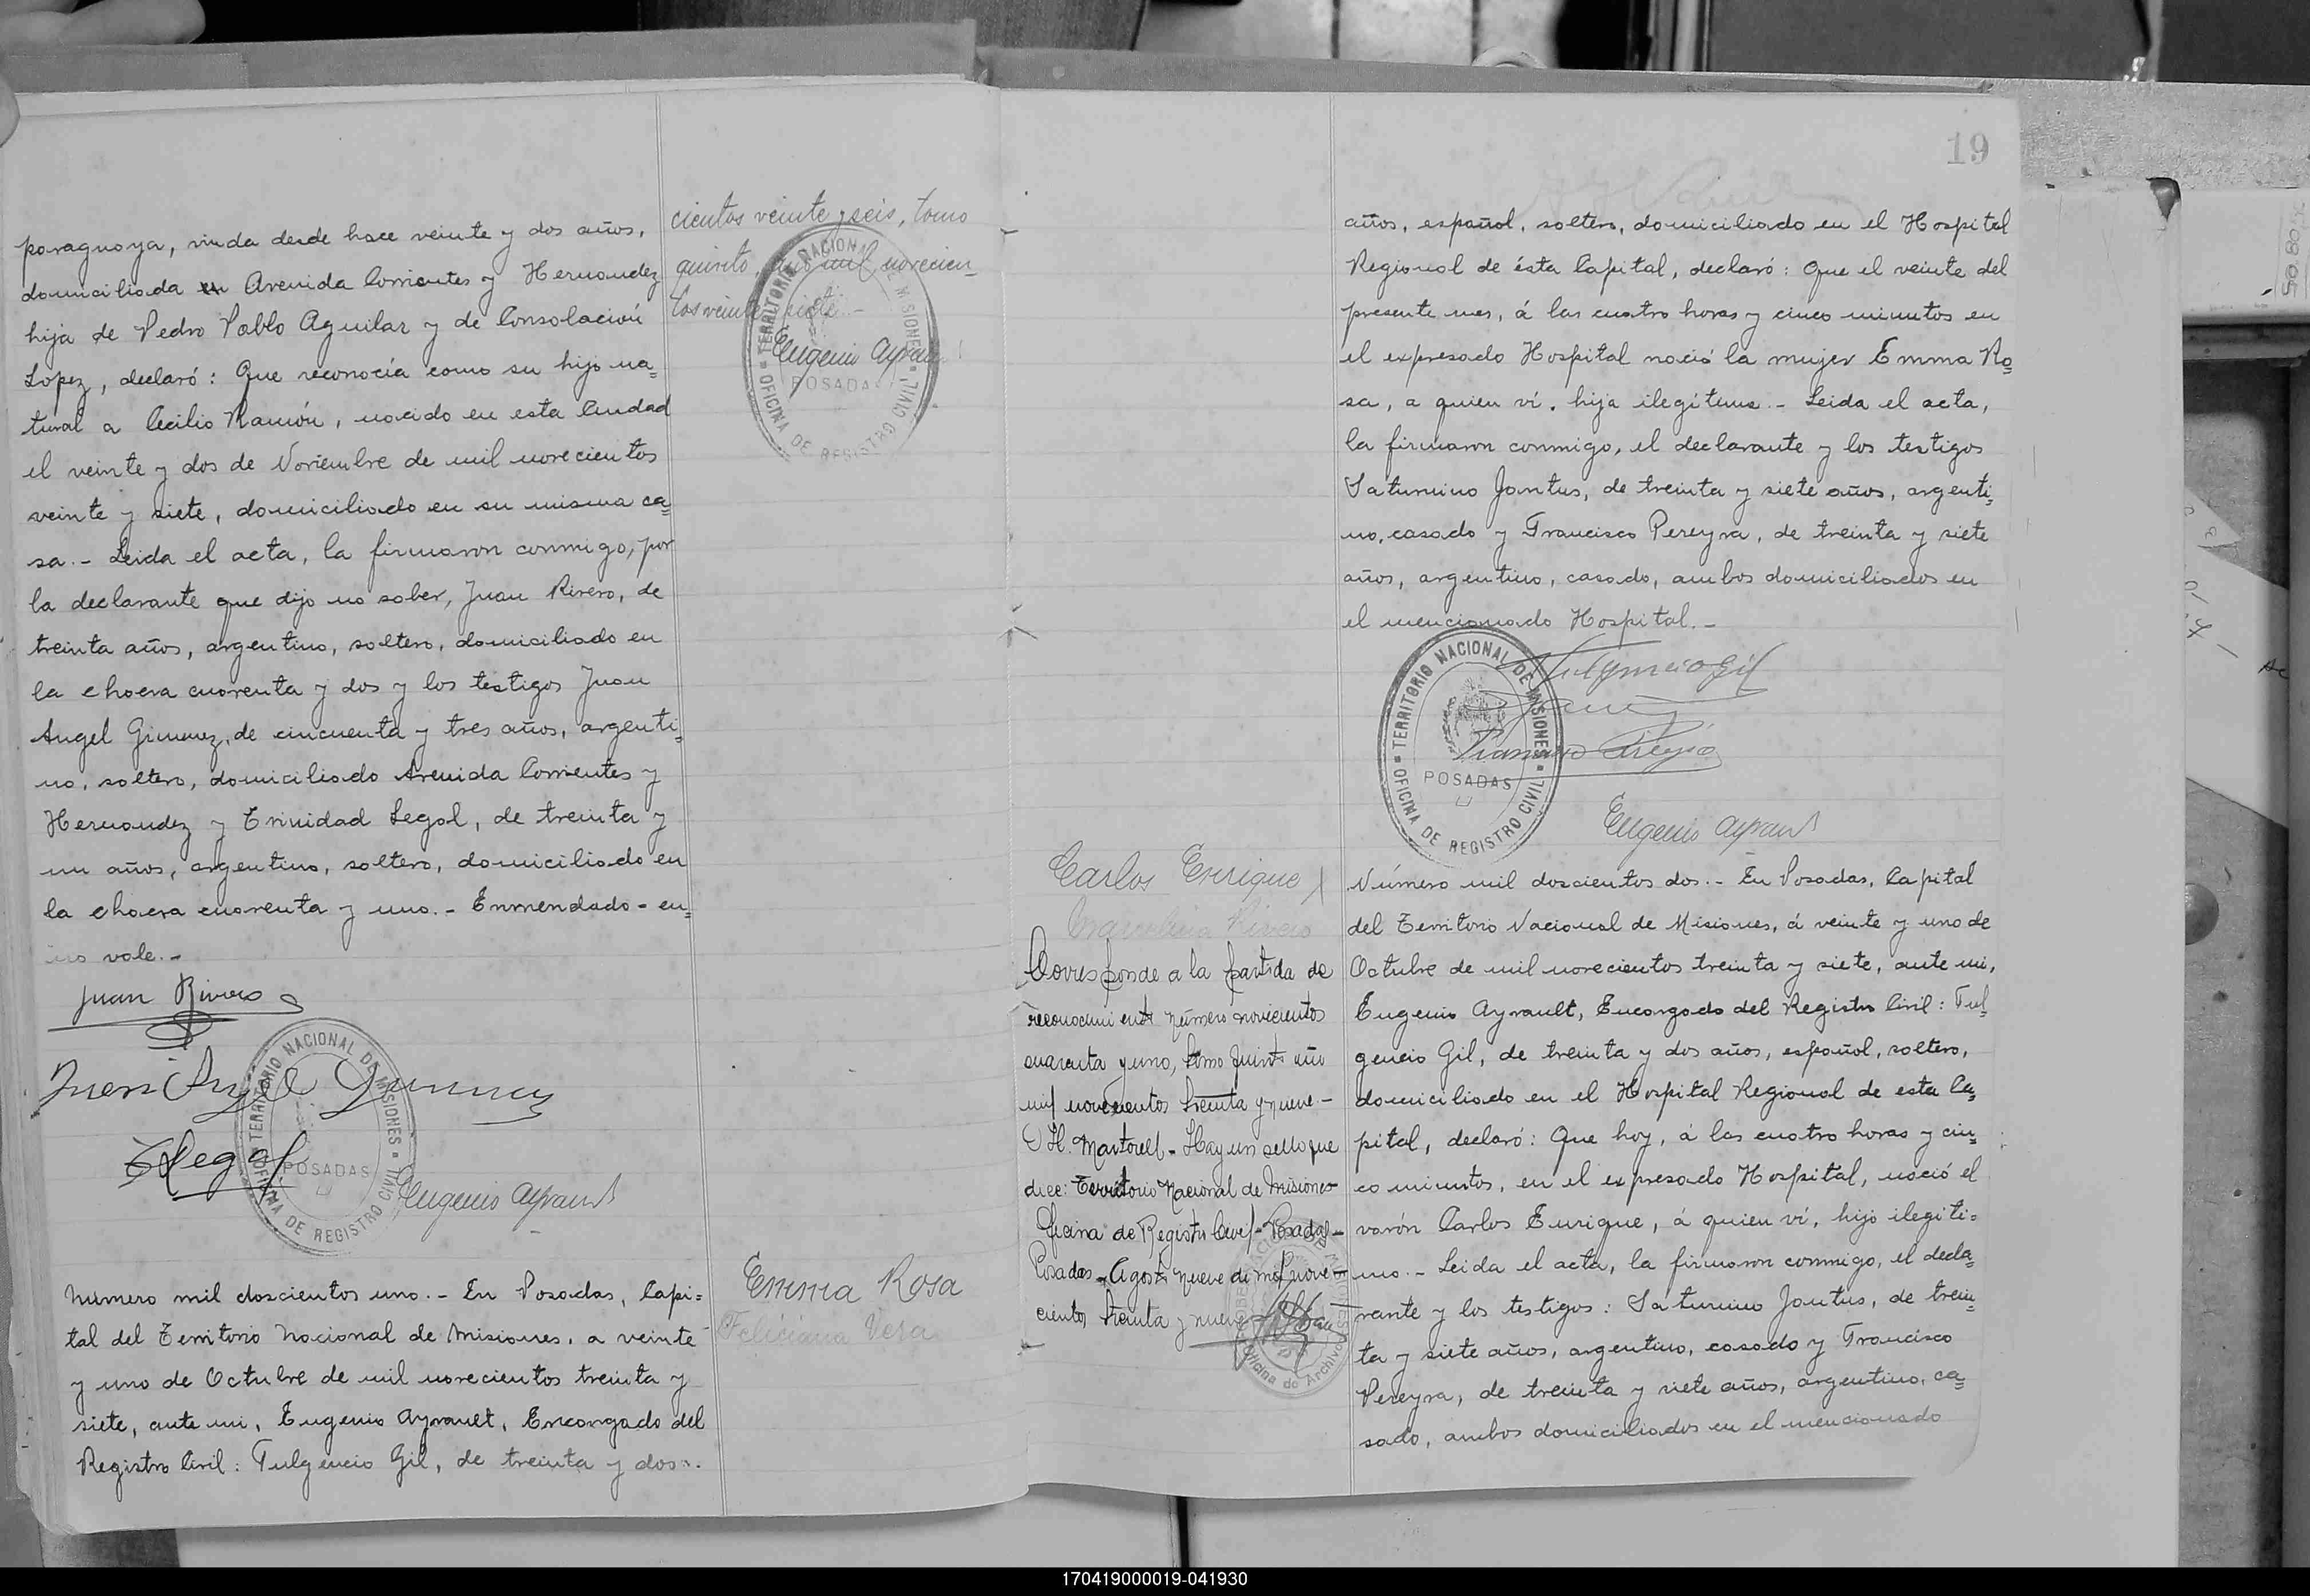 paraguaya, viuda desde hace veinte y dos años,
domiciliada en Avenida Corrientes y Hernandez
hija de Pedro Pablo Aguilar y de Consolación
Lopez, declaró: Que reconocía como su hijo na=
tural a Cecilio Ramón, nacido en esta Ciudad
el veinte y dos de Noviembre de mil novecientos
veinte y siete, domiciliado en su misma ca=
sa.- Leida el acta, la firmaron conmigo, por
la declarante que dijo no saber, Juan Rivero, de
treinta años, argentino, soltero, domiciliado en
la chacra cuarenta y dos y los testigos Juan
Angel Gimenez, de cincuenta y tres años, argenti=
no, soltero, domiciliado Avenida Corrientes y
Hernandez y Trinidad Legal, de treinta y
un años, argentino, soltero, domiciliado en
la chacra cuarenta y uno.- Enmendado - en=
vale.-
Juan Rivero
Juan Angel Gimenez
TLegal
TERRITORIO NACIONAL DE MISIONES
POSADAS
OFICINA DE REGISTRO CIVIL
Eugenio Ayrault
Número mil doscientos uno.- En Posadas, Capi=
tal del Territorio Nacional de Misiones, a veinte
y uno de Octubre de mil novecientos treinta y
siete, ante mi, Eugenio Ayrault, Encargado del
Registro Civil: Fulgencio Gil, de treinta y dos
cientos veinte y seis, tomo
quinto, año mil novecien=
tos veinte siete.-
Eugenio Ayrault
TERRITORIO NACIONAL DE MISIONES
POSADAS
OFICINA DE REGISTRO CIVIL
Emma Rosa
Feliciana Vera
19
años, español, soltero, domiciliado en el Hospital
Regional de ésta Capital, declaró: Que el veinte del
presente mes, á las cuatro horas y cinco minutos en
el expresado Hospital nació la mujer Emma Ro=
sa, a quien ví, hija ilegítima.- Leida el acta,
la firmaron conmigo, el declarante y los testigos
Saturnino Jantus, de treinta y siete años, argenti=
no, casado y Francisco Pereyra, de treinta y siete
años, argentino, casado, ambos domiciliados en
el mencionado Hospital.-
Fulgencio Gil
Francisco Pereyra
TERRITORIO NACIONAL DE MISIONES
POSADAS
OFICINA DE REGISTRO CIVIL
Eugenio Ayrault
Carlos Enrique
Marcelina Rivero
Corresponde a la partida de
reconocimiento número novecientos
cuarenta y uno, tomo quinto año
mil novecientos treinta y nueve.-
H. Martorell - Hay un sello que
dice: Territorio Nacional de Misiones
Oficina de Registro Civil - Posadas -
Posadas, Agosto nueve de mil nove-
cientos treinta y nueve
Oficina de Archivo
Número mil doscientos dos.- En Posadas, Capital
del Territorio Nacional de Misiones, á veinte y uno de
Octubre de mil novecientos treinta y siete, ante mi,
Eugenio Ayrault, Encargado del Registro Civil: Ful=
gencio Gil, de treinta y dos años, español, soltero,
domiciliado en el Hospital Regional de esta Ca=
pital, declaró: Que hoy, á las cuatro horas y cin=
co minutos, en el expresado Hospital, nació el
varón Carlos Enrique, á quien ví, hijo ilegíti=
mo.- Leida el acta, la firmaron conmigo, el decla=
rante y los testigos: Saturnino Jantus, de trein=
ta y siete años, argentino, casado y Francisco
Pereyra, de treinta y siete años, argentino, ca=
sado, ambos domiciliados en el mencionado
170419000019-041930